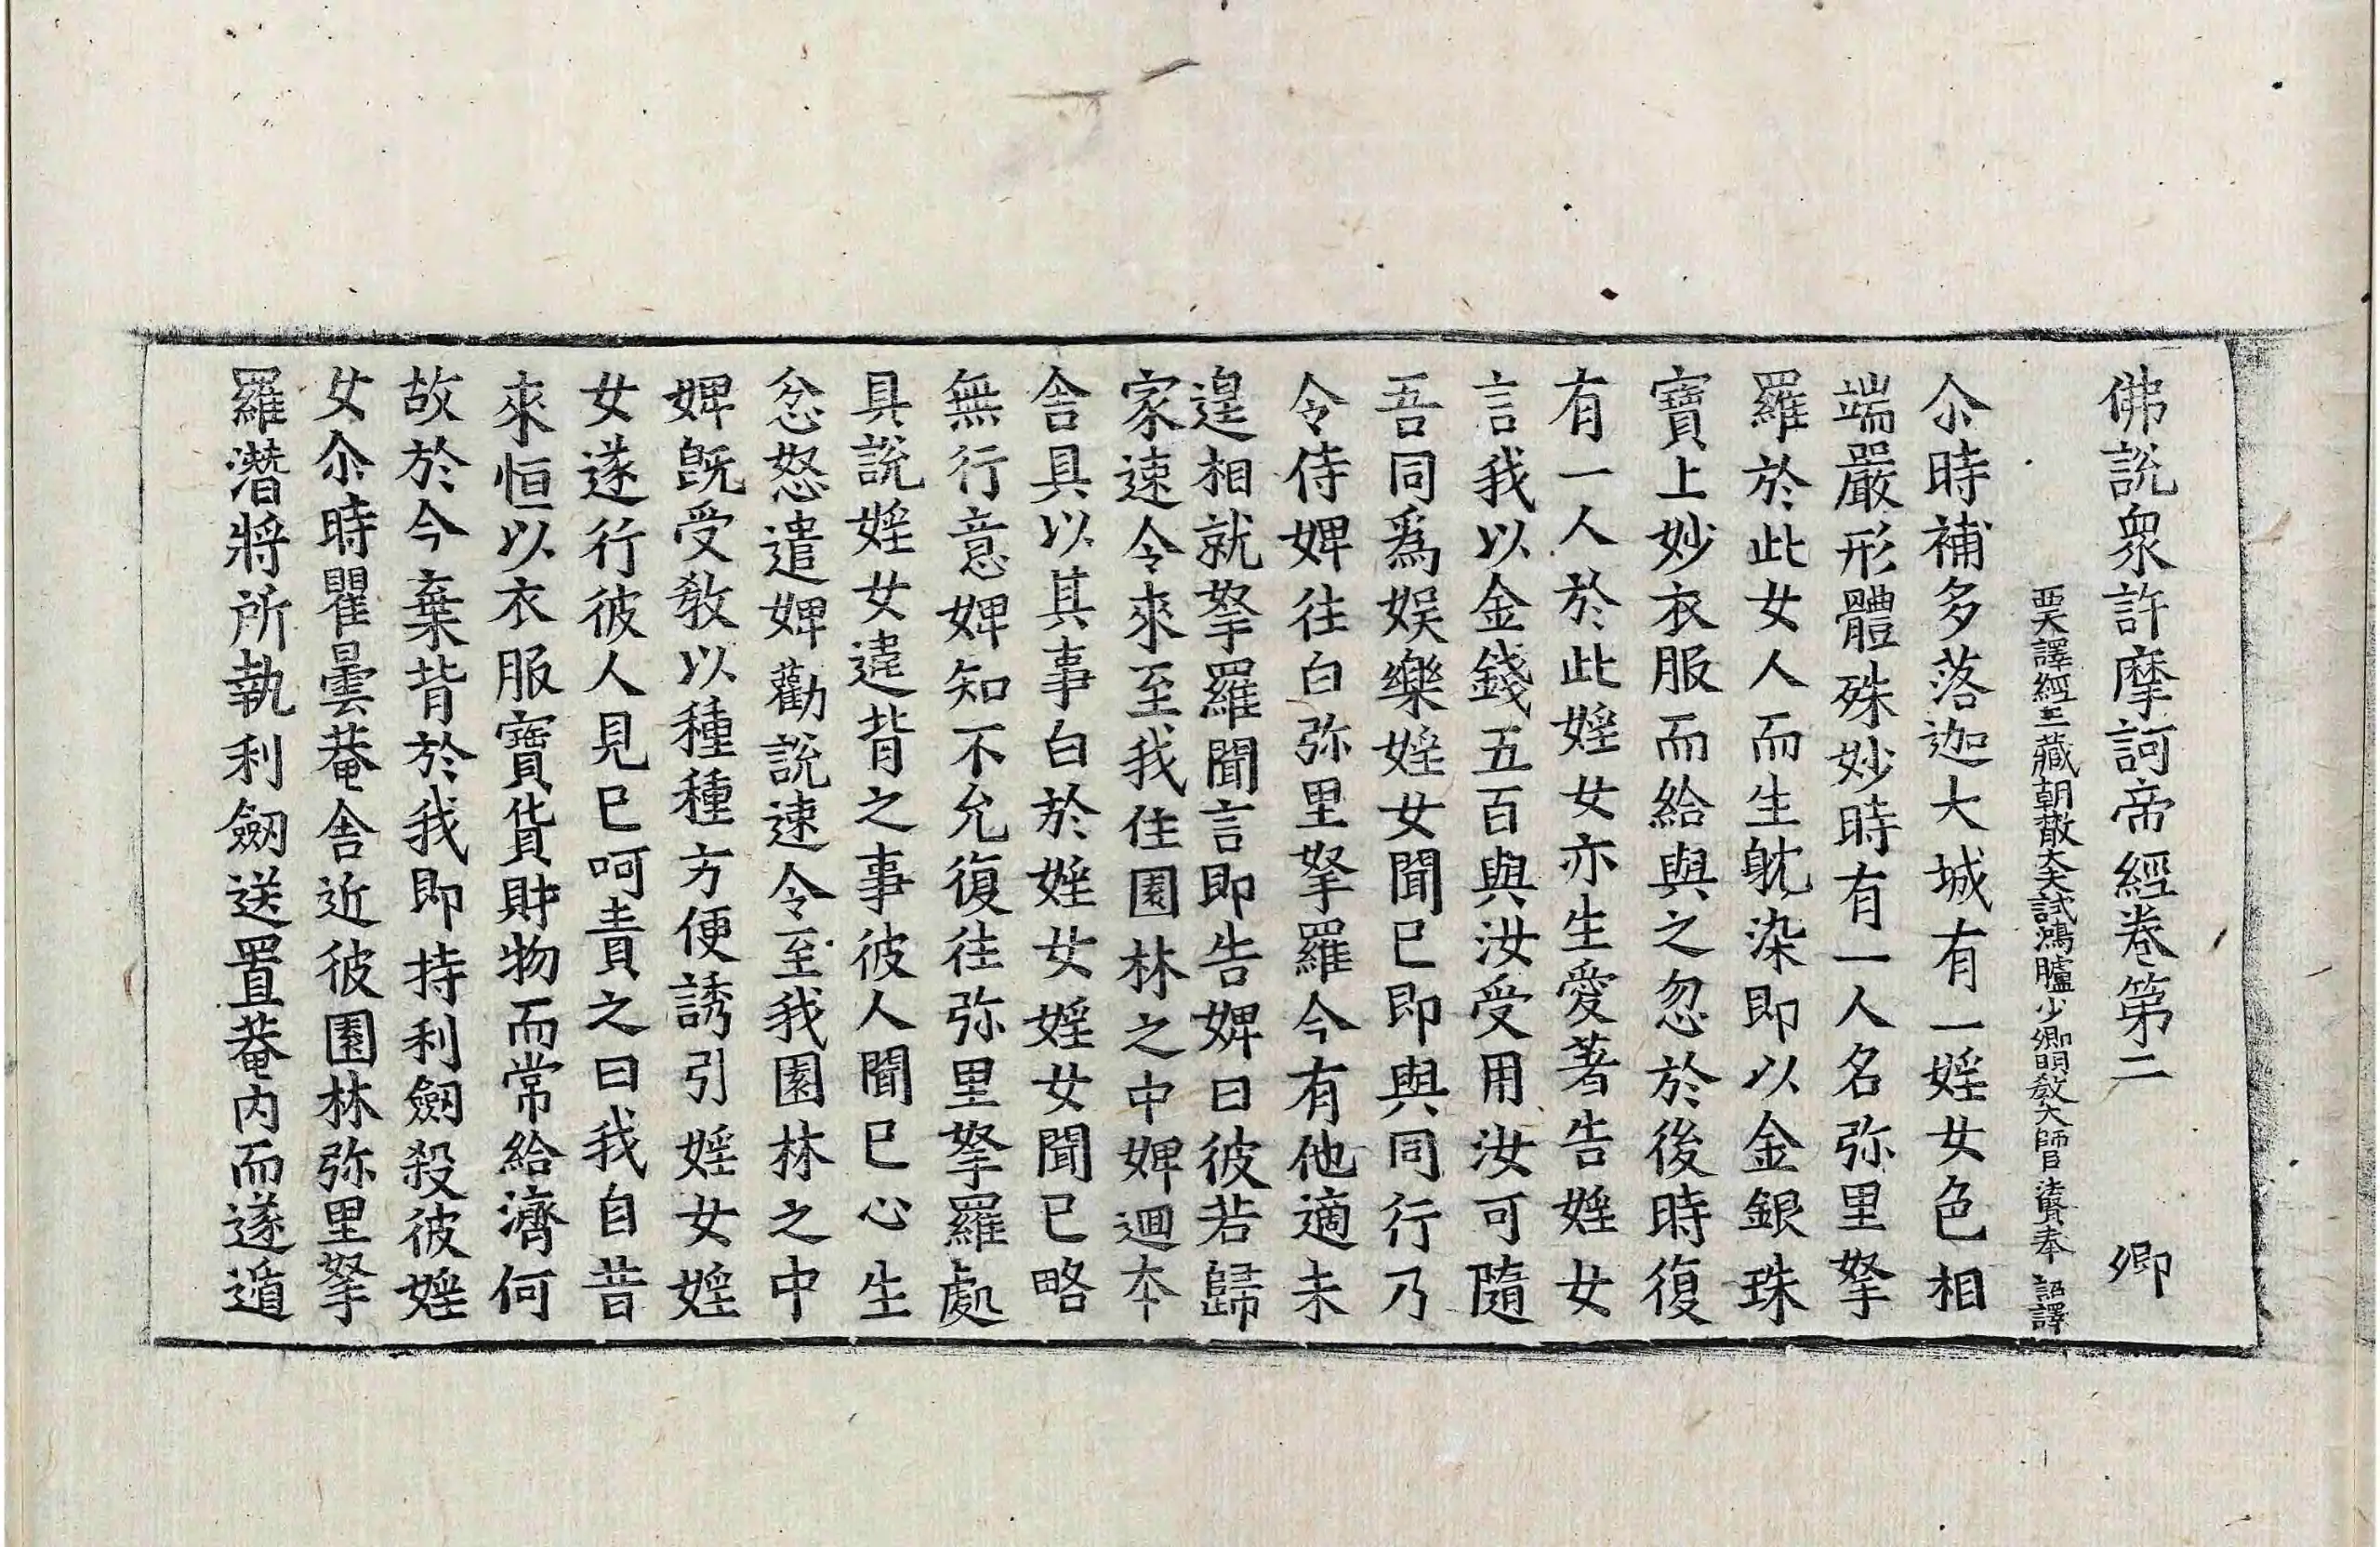 佛說衆許摩訶帝經卷第二　卿
西天譯經三藏朝散大夫試鴻臚少卿明教大師臣法賢奉　詔譯
尒時補多落迦大城有一婬女色相
端嚴形體殊妙時有一人名弥里拏
羅於此女人而生躭染即以金銀珠
寶上妙衣服而給與之忽於後時復
有一人於此婬女亦生愛著告婬女
言我以金錢五百與汝受用汝可隨
吾同爲娛樂婬女聞已即與同行乃
令侍婢往白弥里拏羅今有他適未
遑相就拏羅聞言即告婢曰彼若歸
家速令來至我住園林之中婢迴本
舍具以其事白於婬女婬女聞已略
無行意婢知不允復往弥里拏羅處
具說婬女違背之事彼人聞已心生
忿怒遣婢勸說速令至我園林之中
婢旣受教以種種方便誘引婬女婬
女遂行彼人見已呵責之曰我自昔
來恒以衣服寶貨財物而常給濟何
故於今棄背於我即持利劒殺彼婬
女尒時瞿曇菴舍近彼園林弥里拏
羅潛將所執利劒送置菴內而遂遁